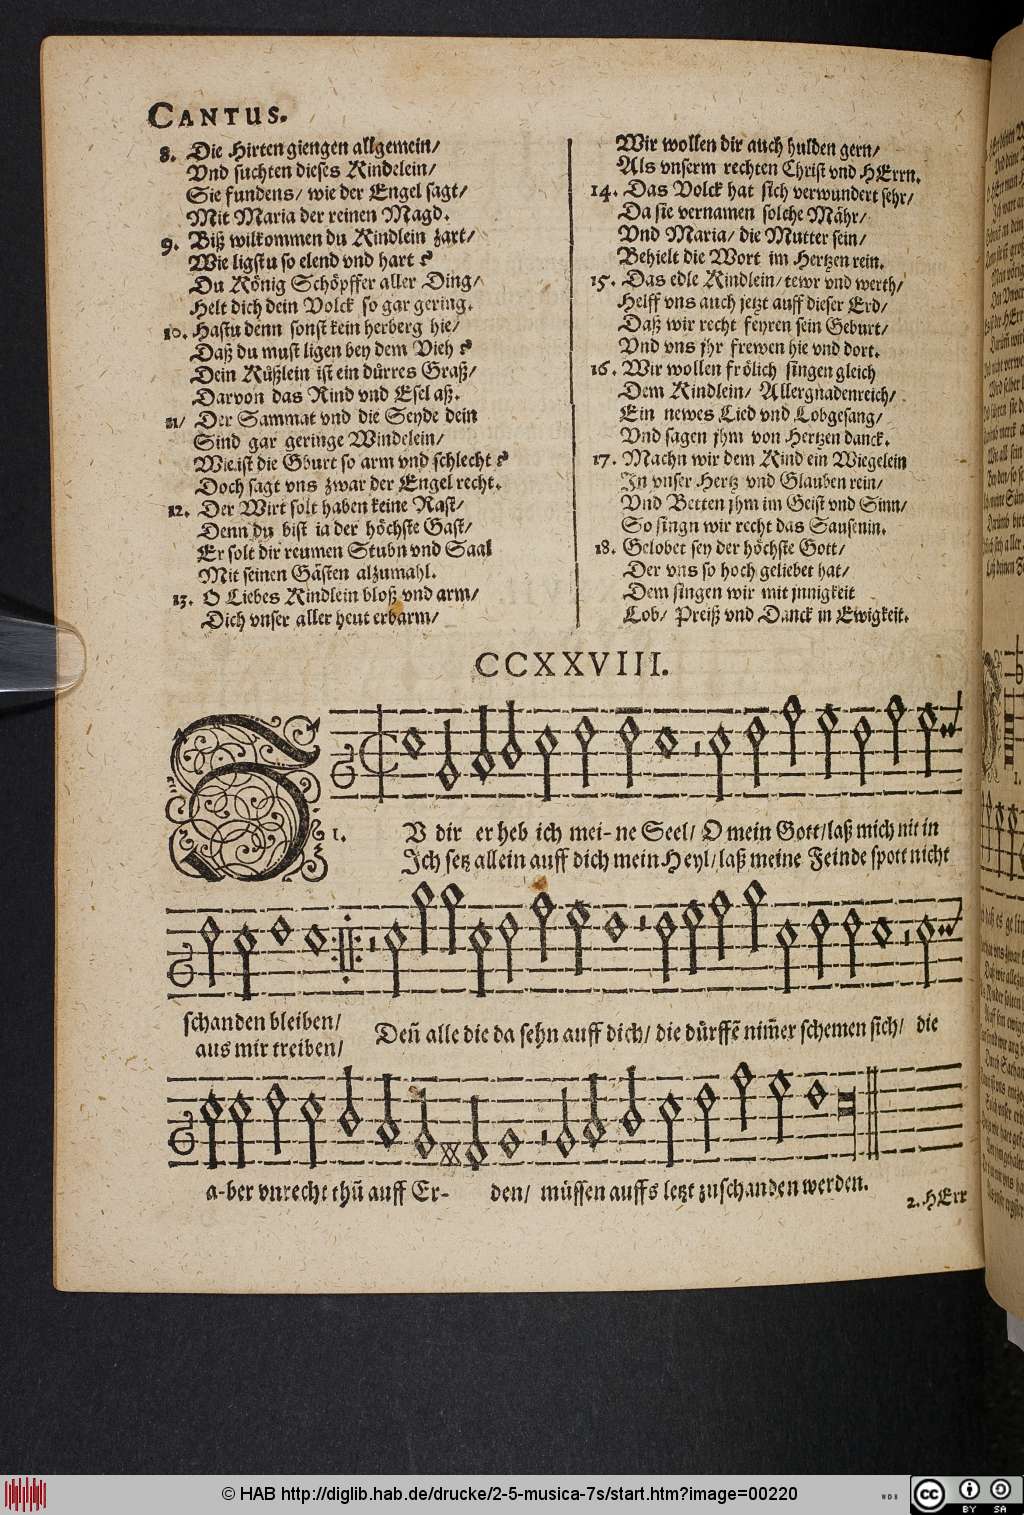 CANTUS.
8. Die Hirten giengen allgemein/
Vnd suchten dieses Kindelein/
Sie fundens/ wie der Engel sagt/
Mit Maria der reinen Magd.
9. Biß wilkommen du Kindlein zart/
Wie ligstu so elend vnd hart ?
Du König Schöpffer aller Ding/
Helt dich dein Volck so gar gering.
10. Hastu denn sonst kein herberg hie/
Daß du must ligen bey dem Vieh ?
Dein Küßlein ist ein dürres Graß/
Darvon das Rind vnd Esel aß.
11/ Der Sammat vnd die Seyde dein
Sind gar geringe Windelein/
Wie ist die Gburt so arm vnd schlecht ?
Doch sagt vns zwar der Engel recht.
12. Der Wirt solt haben keine Rast/
Denn du bist ia der höchste Gast/
Er solt dir reumen Stubn vnd Saal
Mit seinen Gästen alzumahl.
13. O Liebes Kindlein bloß vnd arm/
Dich vnser aller heut erbarm/
Wir wollen dir auch hulden gern/
Als vnserm rechten Christ vnd HErrn.
14. Das Volck hat sich verwundert sehr/
Da sie vernamen solche Mähr/
Vnd Maria/ die Mutter sein/
Behielt die Wort im Hertzen rein.
15. Das edle Kindlein/ tewr vnd werth/
Helff vns auch jetzt auff dieser Erd/
Daß wir recht feyren sein Geburt/
Vnd vns jhr frewen hie vnd dort.
16. Wir wollen frölich singen gleich
Dem Kindlein/ Allergnadenreich/
Ein newes Lied vnd Lobgesang/
Vnd sagen jhm von Hertzen danck.
17. Machn wir dem Kind ein Wiegelein
In vnser Hertz vnd Glauben rein/
Vnd Betten jhm im Geist vnd Sinn/
So singn wir recht das Sausenin.
18. Gelobet sey der höchste Gott/
Der vns so hoch geliebet hat/
Dem singen wir mit jnnigkeit
Lob/ Preiß vnd Danck in Ewigkeit.
CCXXVIII.
1. ZV dir er heb ich mei- ne Seel/ O mein Gott/ laß mich nit in
Ich setz allein auff dich mein Heyl/ laß meine Feinde spott nicht
schanden bleiben/
aus mir treiben/
Deñ alle die da sehn auff dich/ die dürffẽ nim̃er schemen sich/ die
a-ber vnrecht thũ auff Er- den/ müssen auffs letzt zuschanden werden.
2. HErr
© HAB http://diglib.hab.de/drucke/2-5-musica-7s/start.htm?image=00220
WDB
cc BY SA